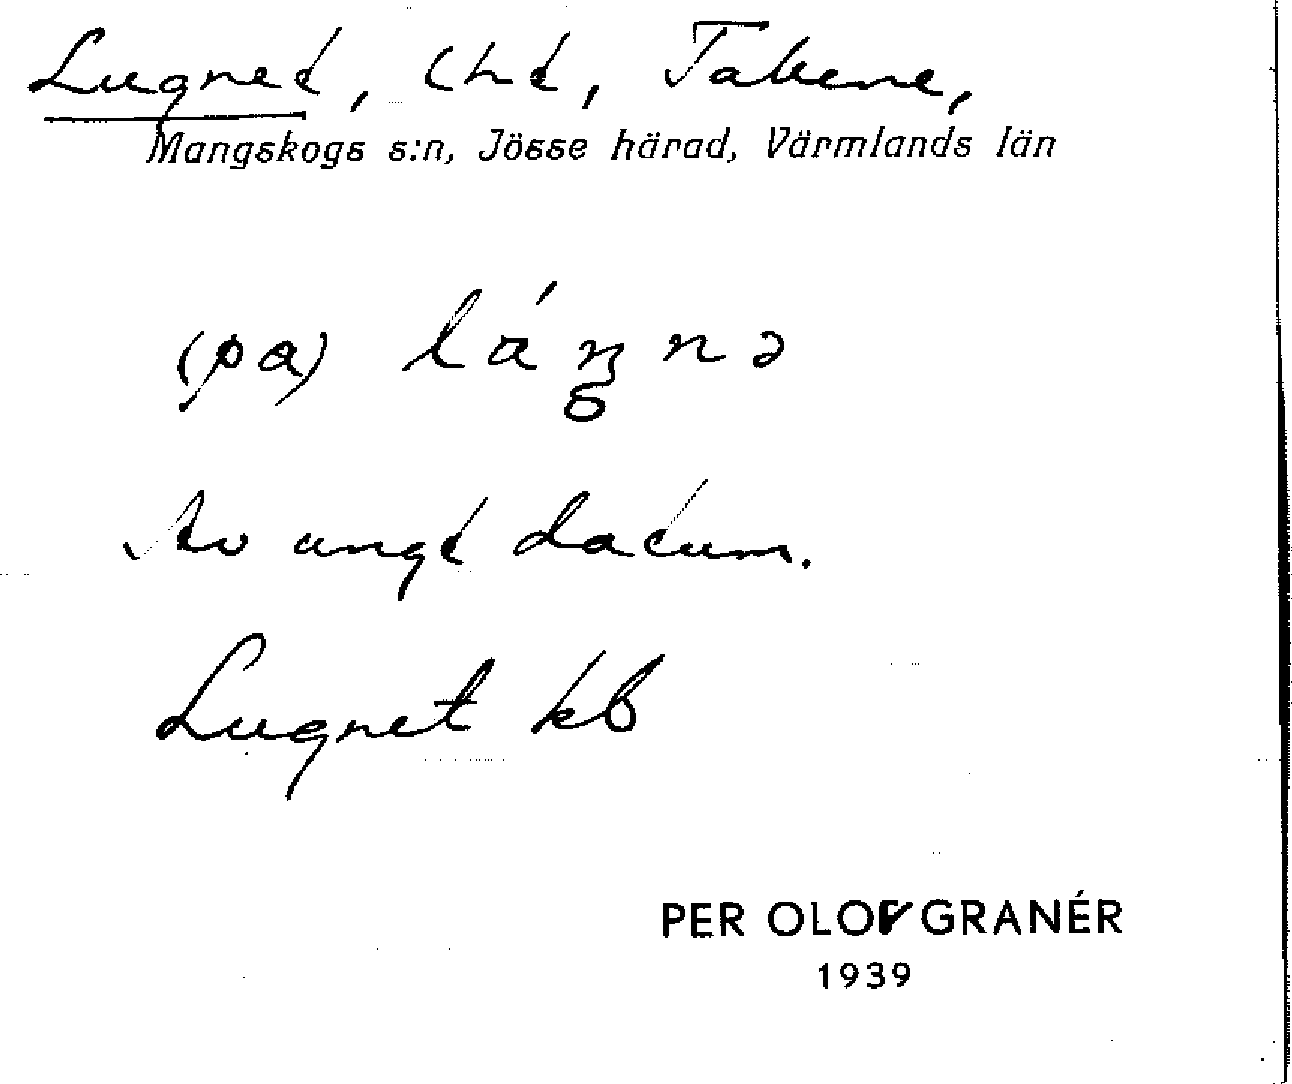 Lugnet, tht, Takene,
Mangskogs s:n, Jösse härad, Värmlands län
(pa) lá ŋ n ə
Av ungt datum.
Lugnet kb
PER OLOF GRANÉR
1939